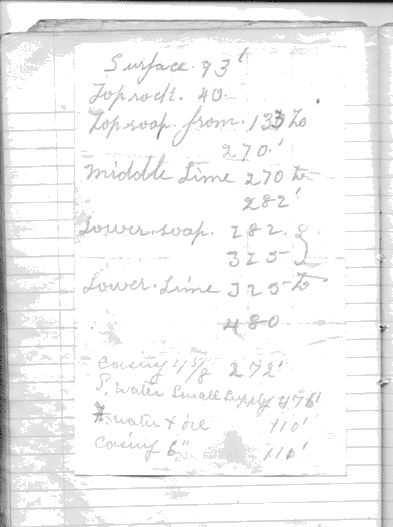 Surface. 93'
Toprock. 40.
Topsoap. from. 133 to
270.'
middle Lime 270 to
282'
Lower. soap. 282. &
325
Lower. Lime 325 to
480
casing 4 5/8 272'
S. water Small Supply 476'
water & oil 110'
casing 6" 110'